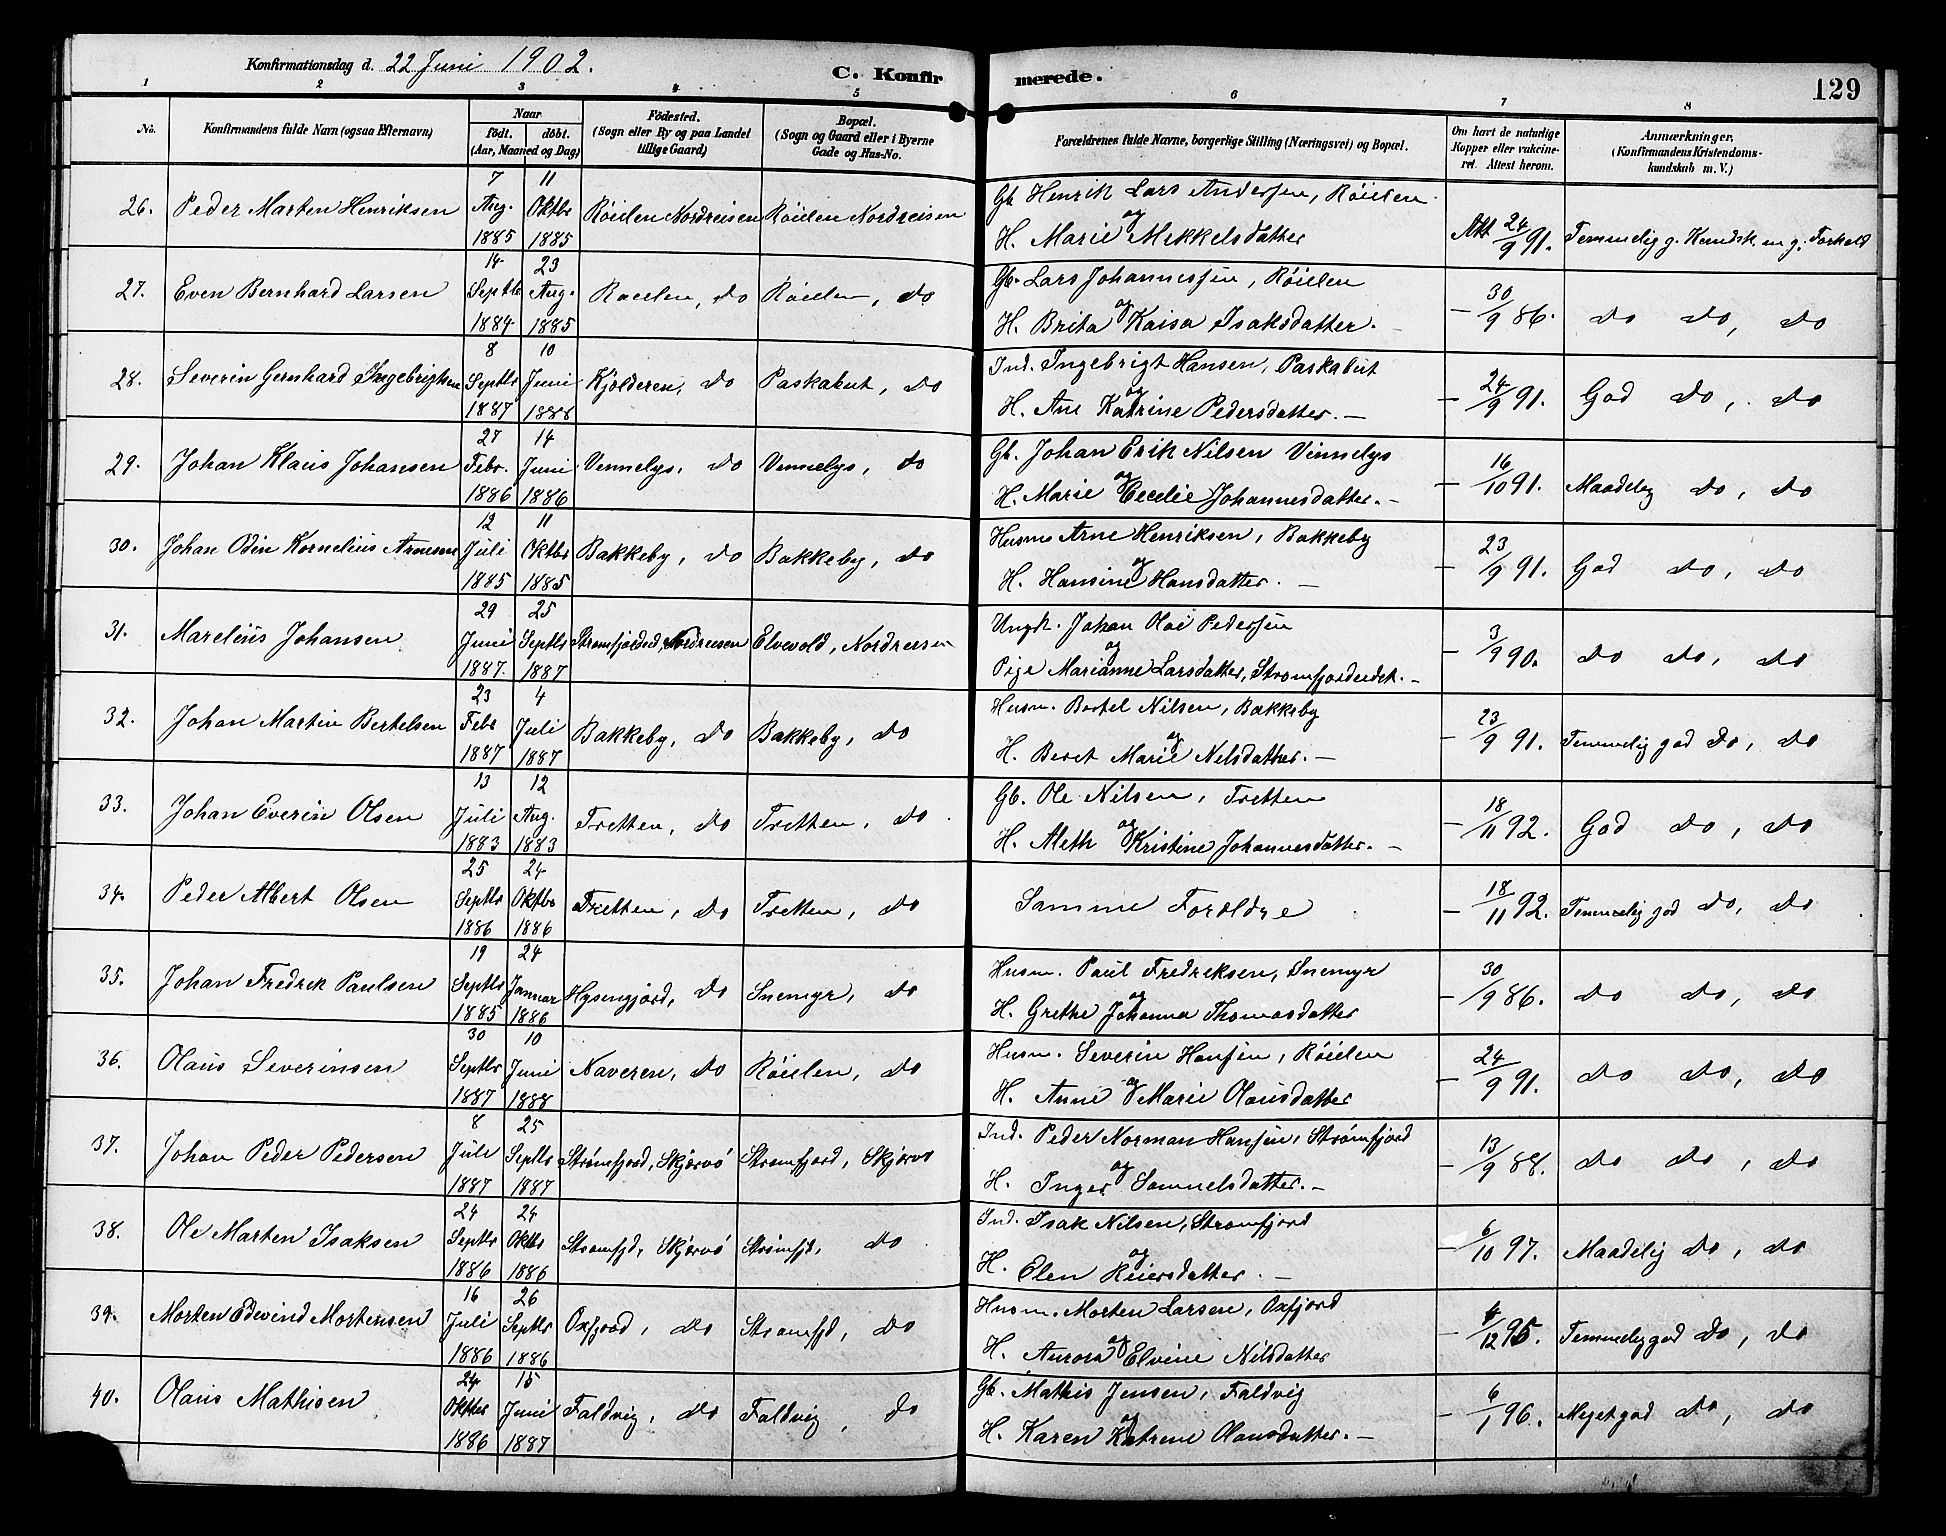 Konfirmationsdag d. 22 Juni 1902.
C. Konfirmerede.
129
1 2 3 4 5 6 7 8
No.
Konfirmandens fulde Navn (ogsaa Efternavn)
Naar
födt. döbt.
(Aar, Maaned og Dag)
Födested.
(Sogn eller By og paa Landet
tillige Gaard)
Bopæl.
(Sogn og Gaard eller i Byerne
Gade og Hus-No.
Forældrenes fulde Navne, borgerlige Stilling (Næringsvei) og Bopæl.
Om havt de naturlige
Kopper eller vakcine-
ret. Attest herom.
Anmærkninger.
(Konfirmandens Kristendoms-
kundskab m. V.)
26. Peder Marten Henriksen 7 Aug. 1885 11 Oktbr 1885 Röielen Nordreisen Röielen Nordreisen Gb. Henrik Lars Andersen, Röielen og H. Marie Mikkelsdatter Att 24/9 91. Temmelig g. Kundsk. en g. Forhold
27. Even Bernhard Larsen 14 Septbr 1884 23 Aug. 1885 Röielen, do Röielen, do Gb. Lars Johannessen, Röielen og H. Brita Kaisa Isaksdatter. – – 30/9 86. do do, do
28. Severin Gernhard Ingebrigtsen 8 Septbr 1887 10 Juni 1888 Kjölderen, do Paskabut, do Ind. Ingebrigt Hansen, Paskabut og H. Ane Katrine Pedersdatter. – – 24/9 91. God do, do
29. Johan Klaus Johansen 27 Febr. 1886 14 Juni 1886 Vennelys, do Vennelys, do Gb. Johan Erik Nilsen Vinnelys og H. Marie Cecelie Johannesdatter. – – 16/10 91. Maadelig do, do
30. Johan Odin Kornelius Arnesen 12 Juli 1885 11 Oktbr 1885 Bakkeby, do Bakkeby, do Husm. Arne Henriksen, Bakkeby og H. Hansine Hansdatter. – – 23/9 91. God do, do
31. Marelius Johansen 29 Juni 1887. 25 Septbr 1887 Strømfjordeid, Nordreisen Elvevold, Nordreisen Ungk. Johan Olai Pedersen og Pige Marianne Larsdatter, Strømfjordeidet. – – 3/9 90. do do, do
32. Johan Martin Bertelsen 23 Febr 1887 4 Juli 1887 Bakkeby, do Bakkeby, do Husm. Bertel Nilsen, Bakkeby og H. Beret Marie Nilsdatter. – – 23/9 91. Temmelig god do, do
33. Johan Everin Olsen 13 Juli 1883 12 Aug. 1883 Tretten, do Tretten, do Gb. Ole Nilsen, Tretten og H. Aleth Kristine Johannesdatter. – – 18/11 92. God do, do
34. Peder Albert Olsen 25 Septbr 1886 24 Oktbr 1886 Tretten, do Tretten, do Samme Forældre – 18/11 92. Temmelig god do, do
35. Johan Fredrik Paulsen 19 Septbr 1885 24 Januar 1886 Hysengjord, do Snemyr, do Husm. Paul Fredriksen, Snemyr og H. Grethe Johanna Thomasdatter – 30/9 86. do do, do
36. Olaus Severinsen 30 Septbr 1887 10 Juni 1888 Naveren, do Röielen, do Husm. Severin Hansen, Röielen og H. Anne Marie Olausdatter – 24/9 91. do do, do
37. Johan Peder Pedersen 8 Juli 1887 25 Septbr 1887 Strömfjord, Skjervö Strömfjord, Skjervö Ind. Peder Norman Hansen, Strömfjord og H. Inger Samuelsdatter. – – 13/9 88. do do, do
38. Ole Marten Isaksen 24 Septbr 1886 24 Oktbr 1886 Strömfjd, Skjervö Strömfjd, do Ind. Isak Nilsen, Strömfjord og H. Elen Reiersdatter. – – 6/10 97. Maadelig do, do
39. Morten Edevind Mortensen 16 Juli 1886 26 Septbr 1886 Oxfjord, do Strömfjd, do Husm. Morten Larsen, Oxfjord og H. Aurora Elvine Nilsdatter – 4/12 95. Temmelig god do, do
40. Olaus Mathisen 24 Oktbr 1886 15 Juni 1887 Faldvig, do Faldvig, do Gb. Mathis Jensen, Faldvig og H. Karen Katrine Olausdatter. – – 6/1 96. Meget god do, do